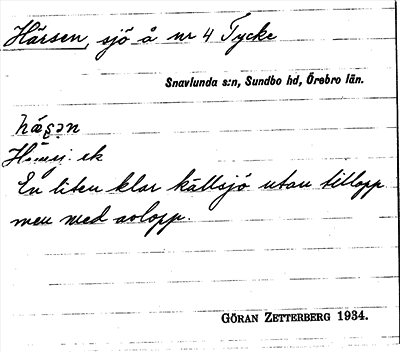 Härsen, sjö å nr 4 Tycke
Snavlunda s:n, Sundbo hd, Örebro län.
hæʂən
ek
En liten klar källsjö utan tillopp
men med avlopp.
GÖRAN ZETTERBERG 1934.